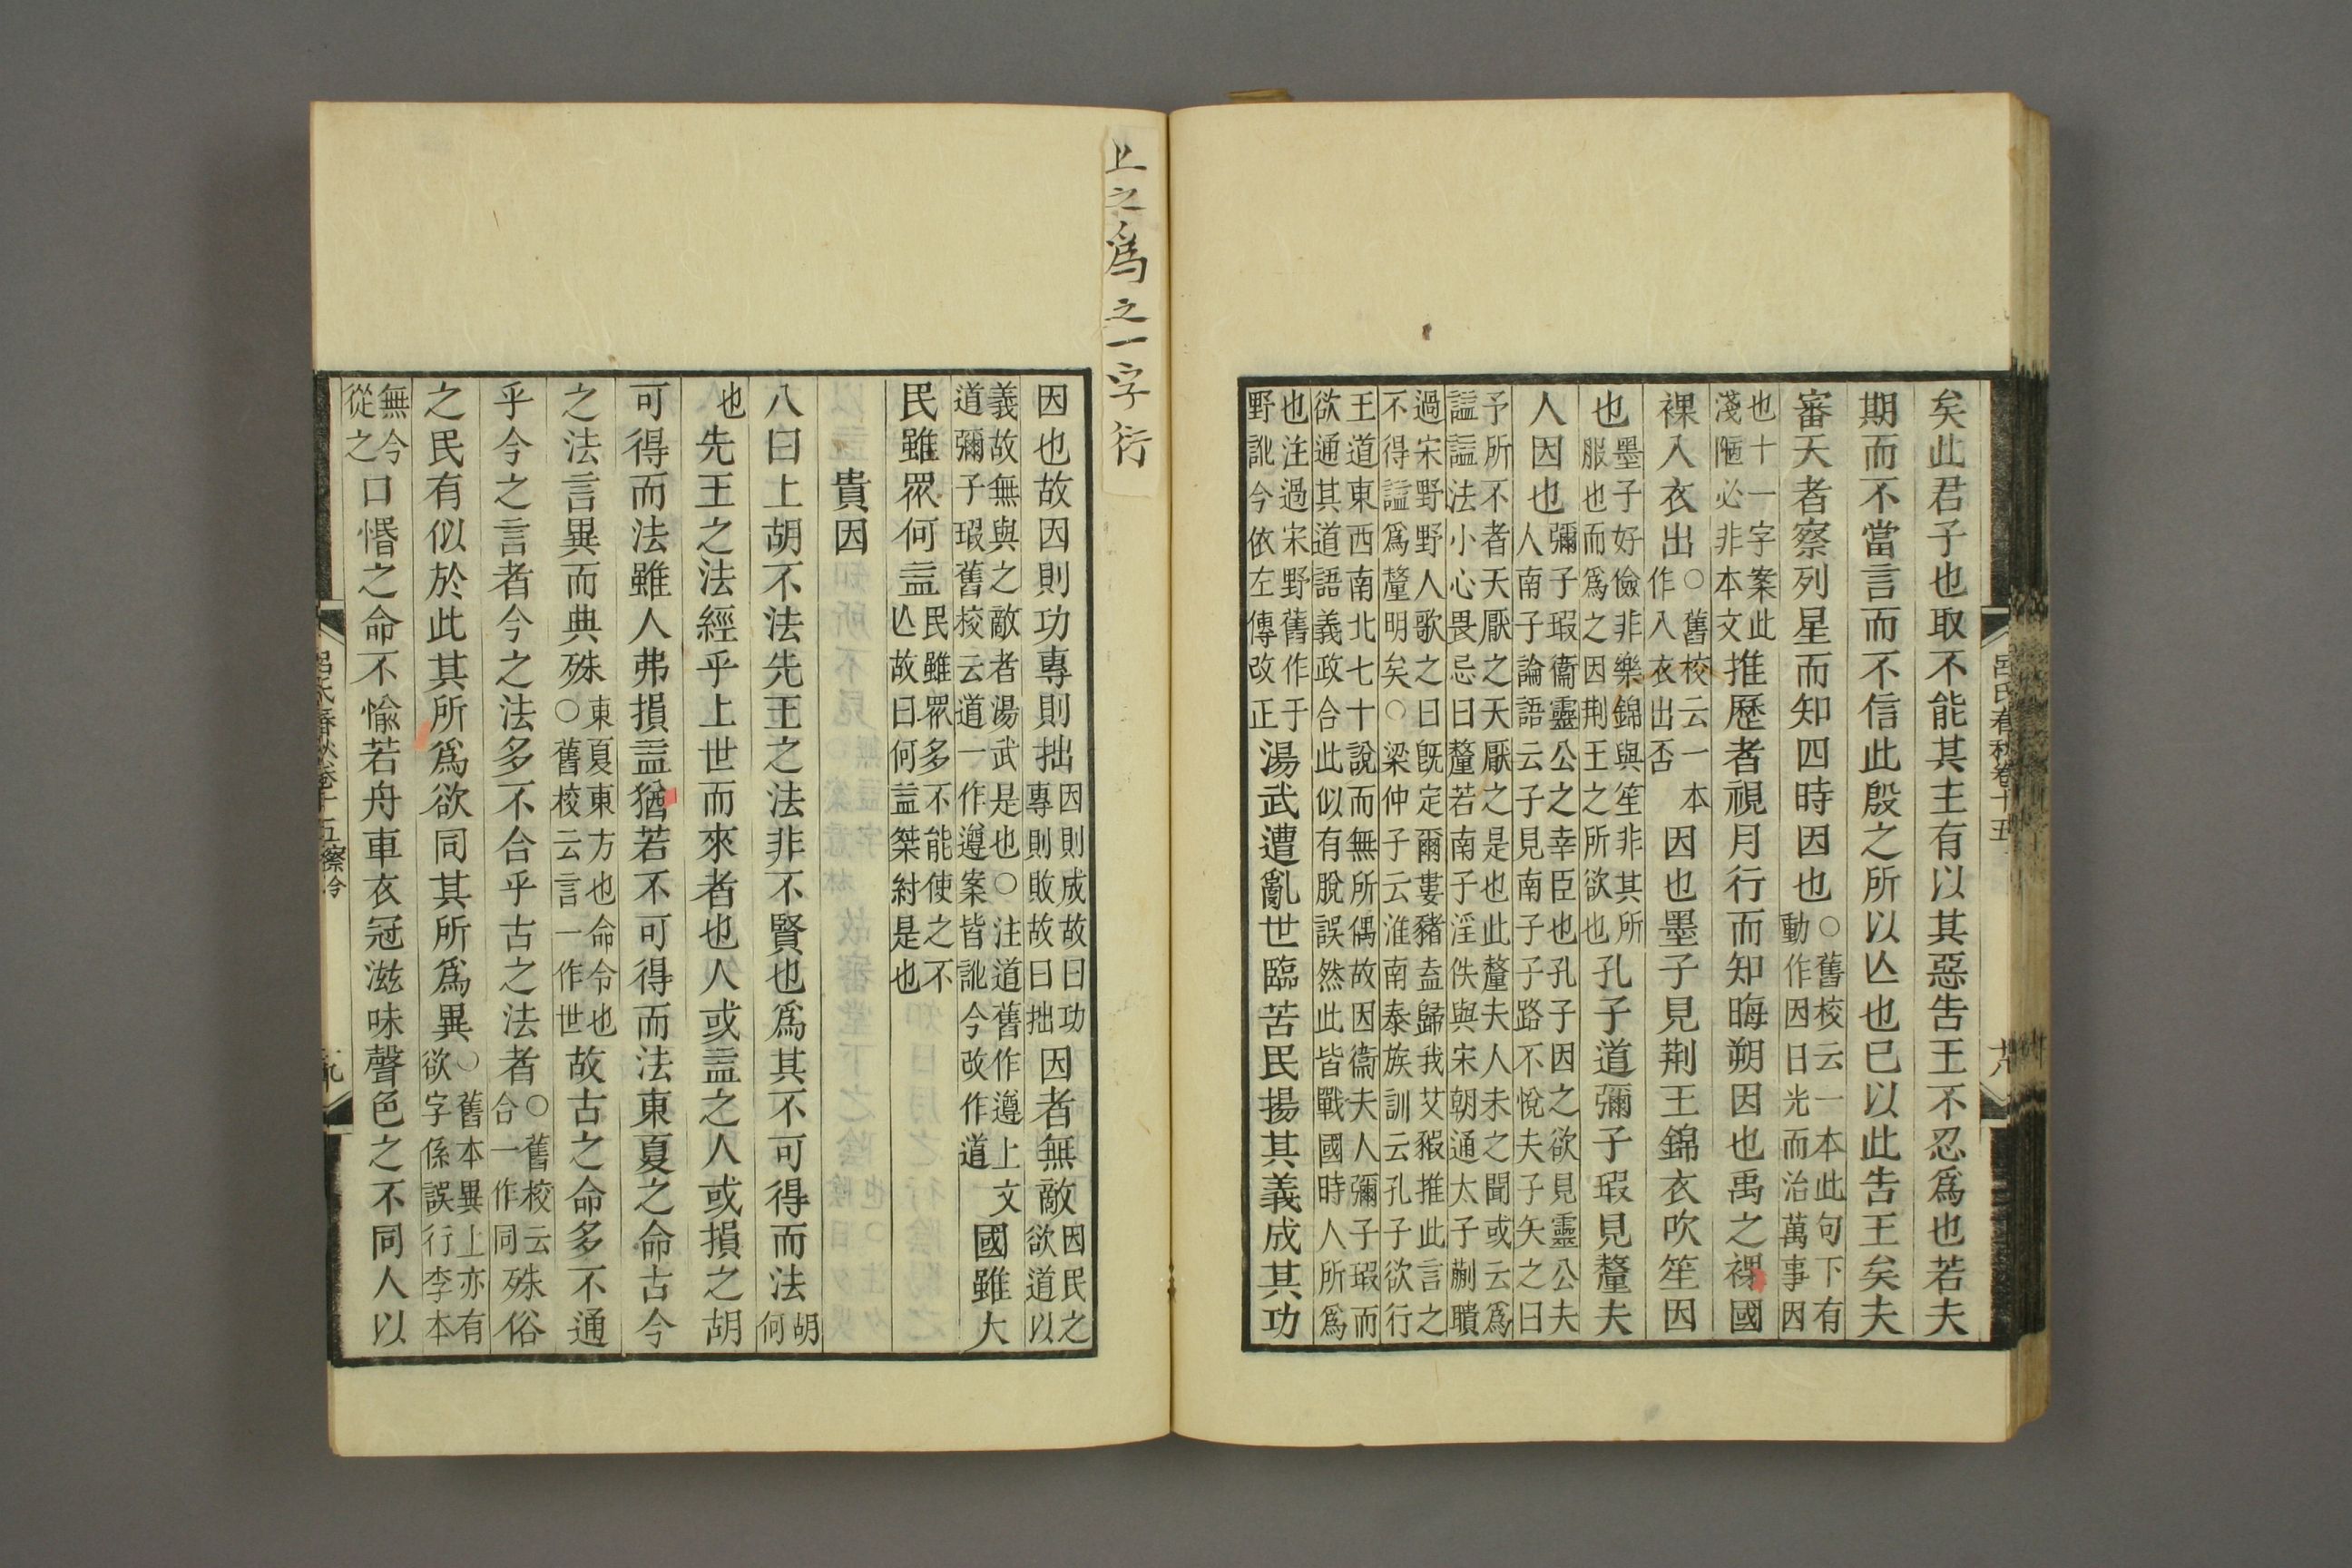 矣此君子也取不能其主有以其惡告王不忍爲也若夫
期而不當言而不信此殷之所以亾也已以此告王矣夫
審天者察列星而知四時因也○舊校云一本此句下有動作因日光而治萬事因
也十一字案此淺陋必非本文推歷者視月行而知晦朔因也禹之裸國
裸入衣出○舊校云一本作入衣出否因也墨子見荆王錦衣吹笙因
也墨子好儉非樂錦與笙非其所服也而爲之因荆王之所欲也孔子道彌子瑕見釐夫
人因也彌子瑕衞靈公之幸臣也孔子因之欲見靈公夫人南子論語云子見南子子路不悅夫子矢之曰
予所不者天厭之天厭之是也此釐夫人未之聞或云爲諡諡法小心畏忌曰釐若南子淫佚與宋朝通太子蒯聵
過宋野野人歌之曰旣定爾婁豬盍歸我艾豭推此言之不得諡爲釐明矣○梁仲子云淮南泰族訓云孔子欲行
王道東西南北七十說而無所偶故因衞夫人彌子瑕而欲通其道語義政合此似有脫誤然此皆戰國時人所爲
也注過宋野舊作于野訛今依左傳改正湯武遭亂世臨苦民揚其義成其功
呂氏春秋卷十五
大
上之爲之一字衍
因也故因則功專則拙因則成故曰功專則敗故曰拙因者無敵因民之欲道以
義故無與之敵者湯武是也○注道舊作遵上文道彌子瑕舊校云道一作遵案皆訛今改作道國雖大
民雖眾何益民雖眾多不能使之不亾故曰何益桀紂是也
貴因
八曰上胡不法先王之法非不賢也爲其不可得而法胡何
也先王之法經乎上世而來者也人或益之人或損之胡
可得而法雖人弗損益猶若不可得而法東夏之命古今
之法言異而典殊東夏東方也命令也○舊校云言一作世故古之命多不通
乎今之言者今之法多不合乎古之法者○舊校云合一作同殊俗
之民有似於此其所爲欲同其所爲異○舊本異上亦有欲字係誤衍李本
無今從之口惽之命不愉若舟車衣冠滋味聲色之不同人以
呂氏春秋卷十五察今